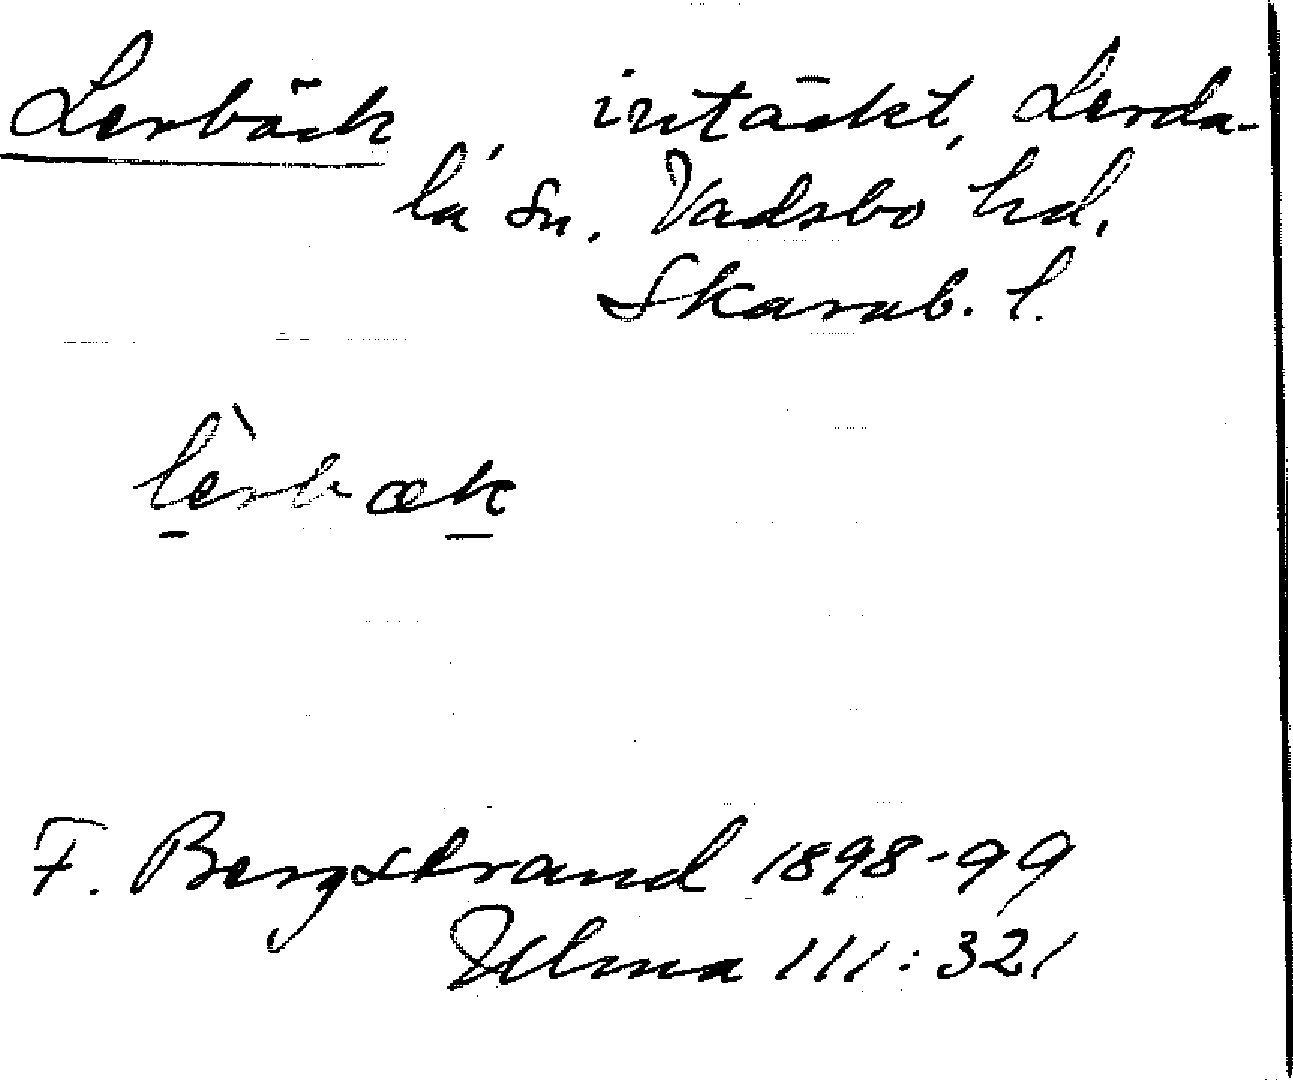 Lerbäck intäkt, Lerda-
la sn. Vadsbo hd.
Skarab. l.
lèrbæk
F. Bergstrand 1898-99
Ulma 111:321